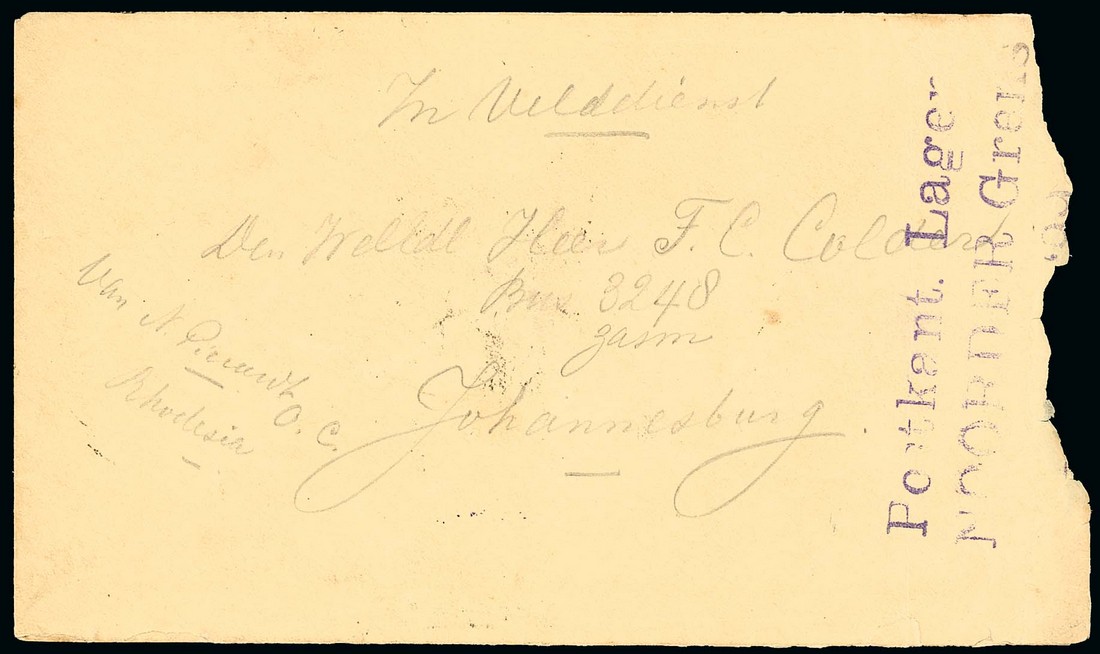 In Velddienst
Den Weledl Heer F. C. Colder
Bus 3248
zasm
Johannesburg.
Van N. O. C.
Rhodesia
Postkant. Lager
NOORDER Grens